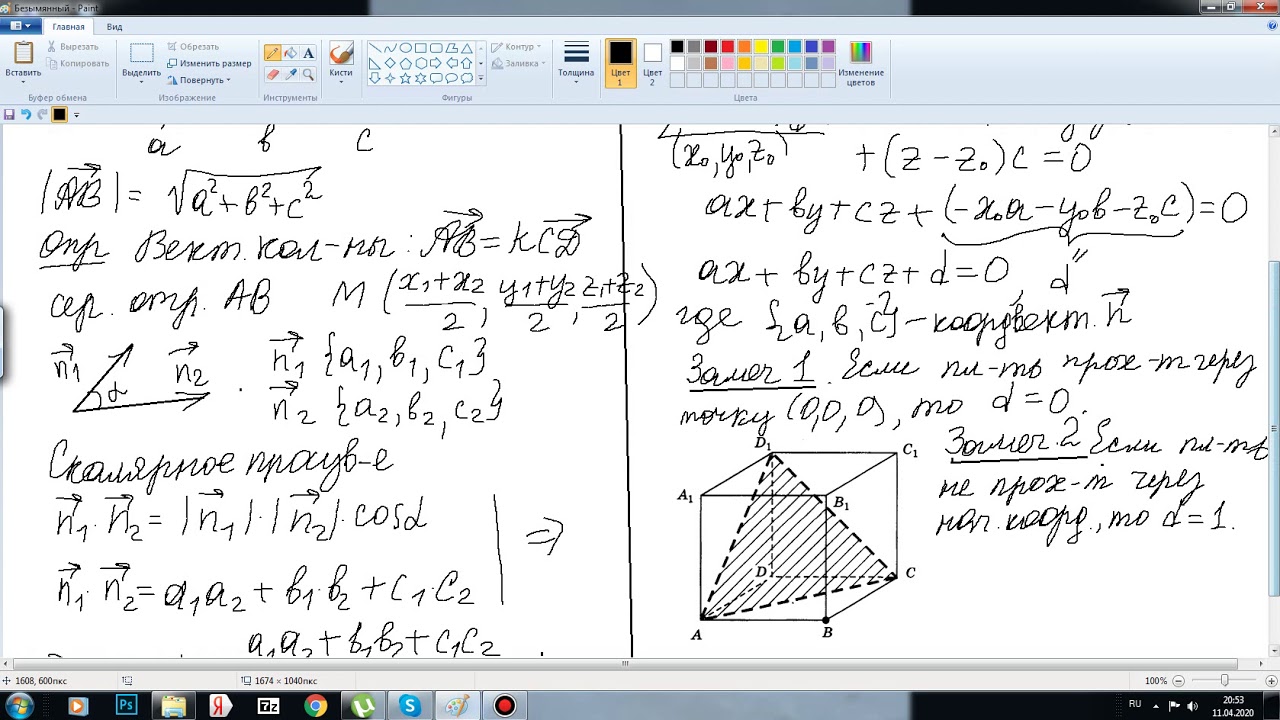 Безымянный - Paint
Главная Вид
Вставить
Вырезать
Копировать
Буфер обмена
Выделить
Обрезать
Изменить размер
Повернуть
Изображение
A
Инструменты
Кисти
Контур
Заливка
Фигуры
Толщина
Цвет 1
Цвет 2
Изменение цветов
Цвета
a в c
|AB| = √a²+в²+c²
Опр Вект. кол-ны: AB = kCD
сер. отр. AB M (x₁+x₂/2, y₁+y₂/2, z₁+z₂/2)
n₁ α n₂
n₁ {a₁, в₁, c₁}
n₂ {a₂, в₂, c₂}
Скалярное произв-е
n₁ · n₂ = |n₁| · |n₂| · cosα
⇒
n₁ · n₂ = a₁a₂ + в₁·в₂ + c₁·c₂
a₁a₂ + в₁в₂ + c₁c₂
(x₀, y₀, z₀) + (z – z₀)c = 0
ax + вy + cz + (–x₀a – y₀в – z₀c) = 0
ax + вy + cz + d = 0, d
где {a, в, c} – коорд. вект. n
Замеч 1. Если пл-ть прох-т через
точку (0,0,0), то d = 0.
Замеч. 2 Если пл-ть
не прох-т через
нач. коорд., то d = 1.
D₁ C₁
A₁ B₁
D C
A B
1608, 600пкс
1674 × 1040пкс
100%
Ps
Я
7z
S
RU
20:53
11.04.2020